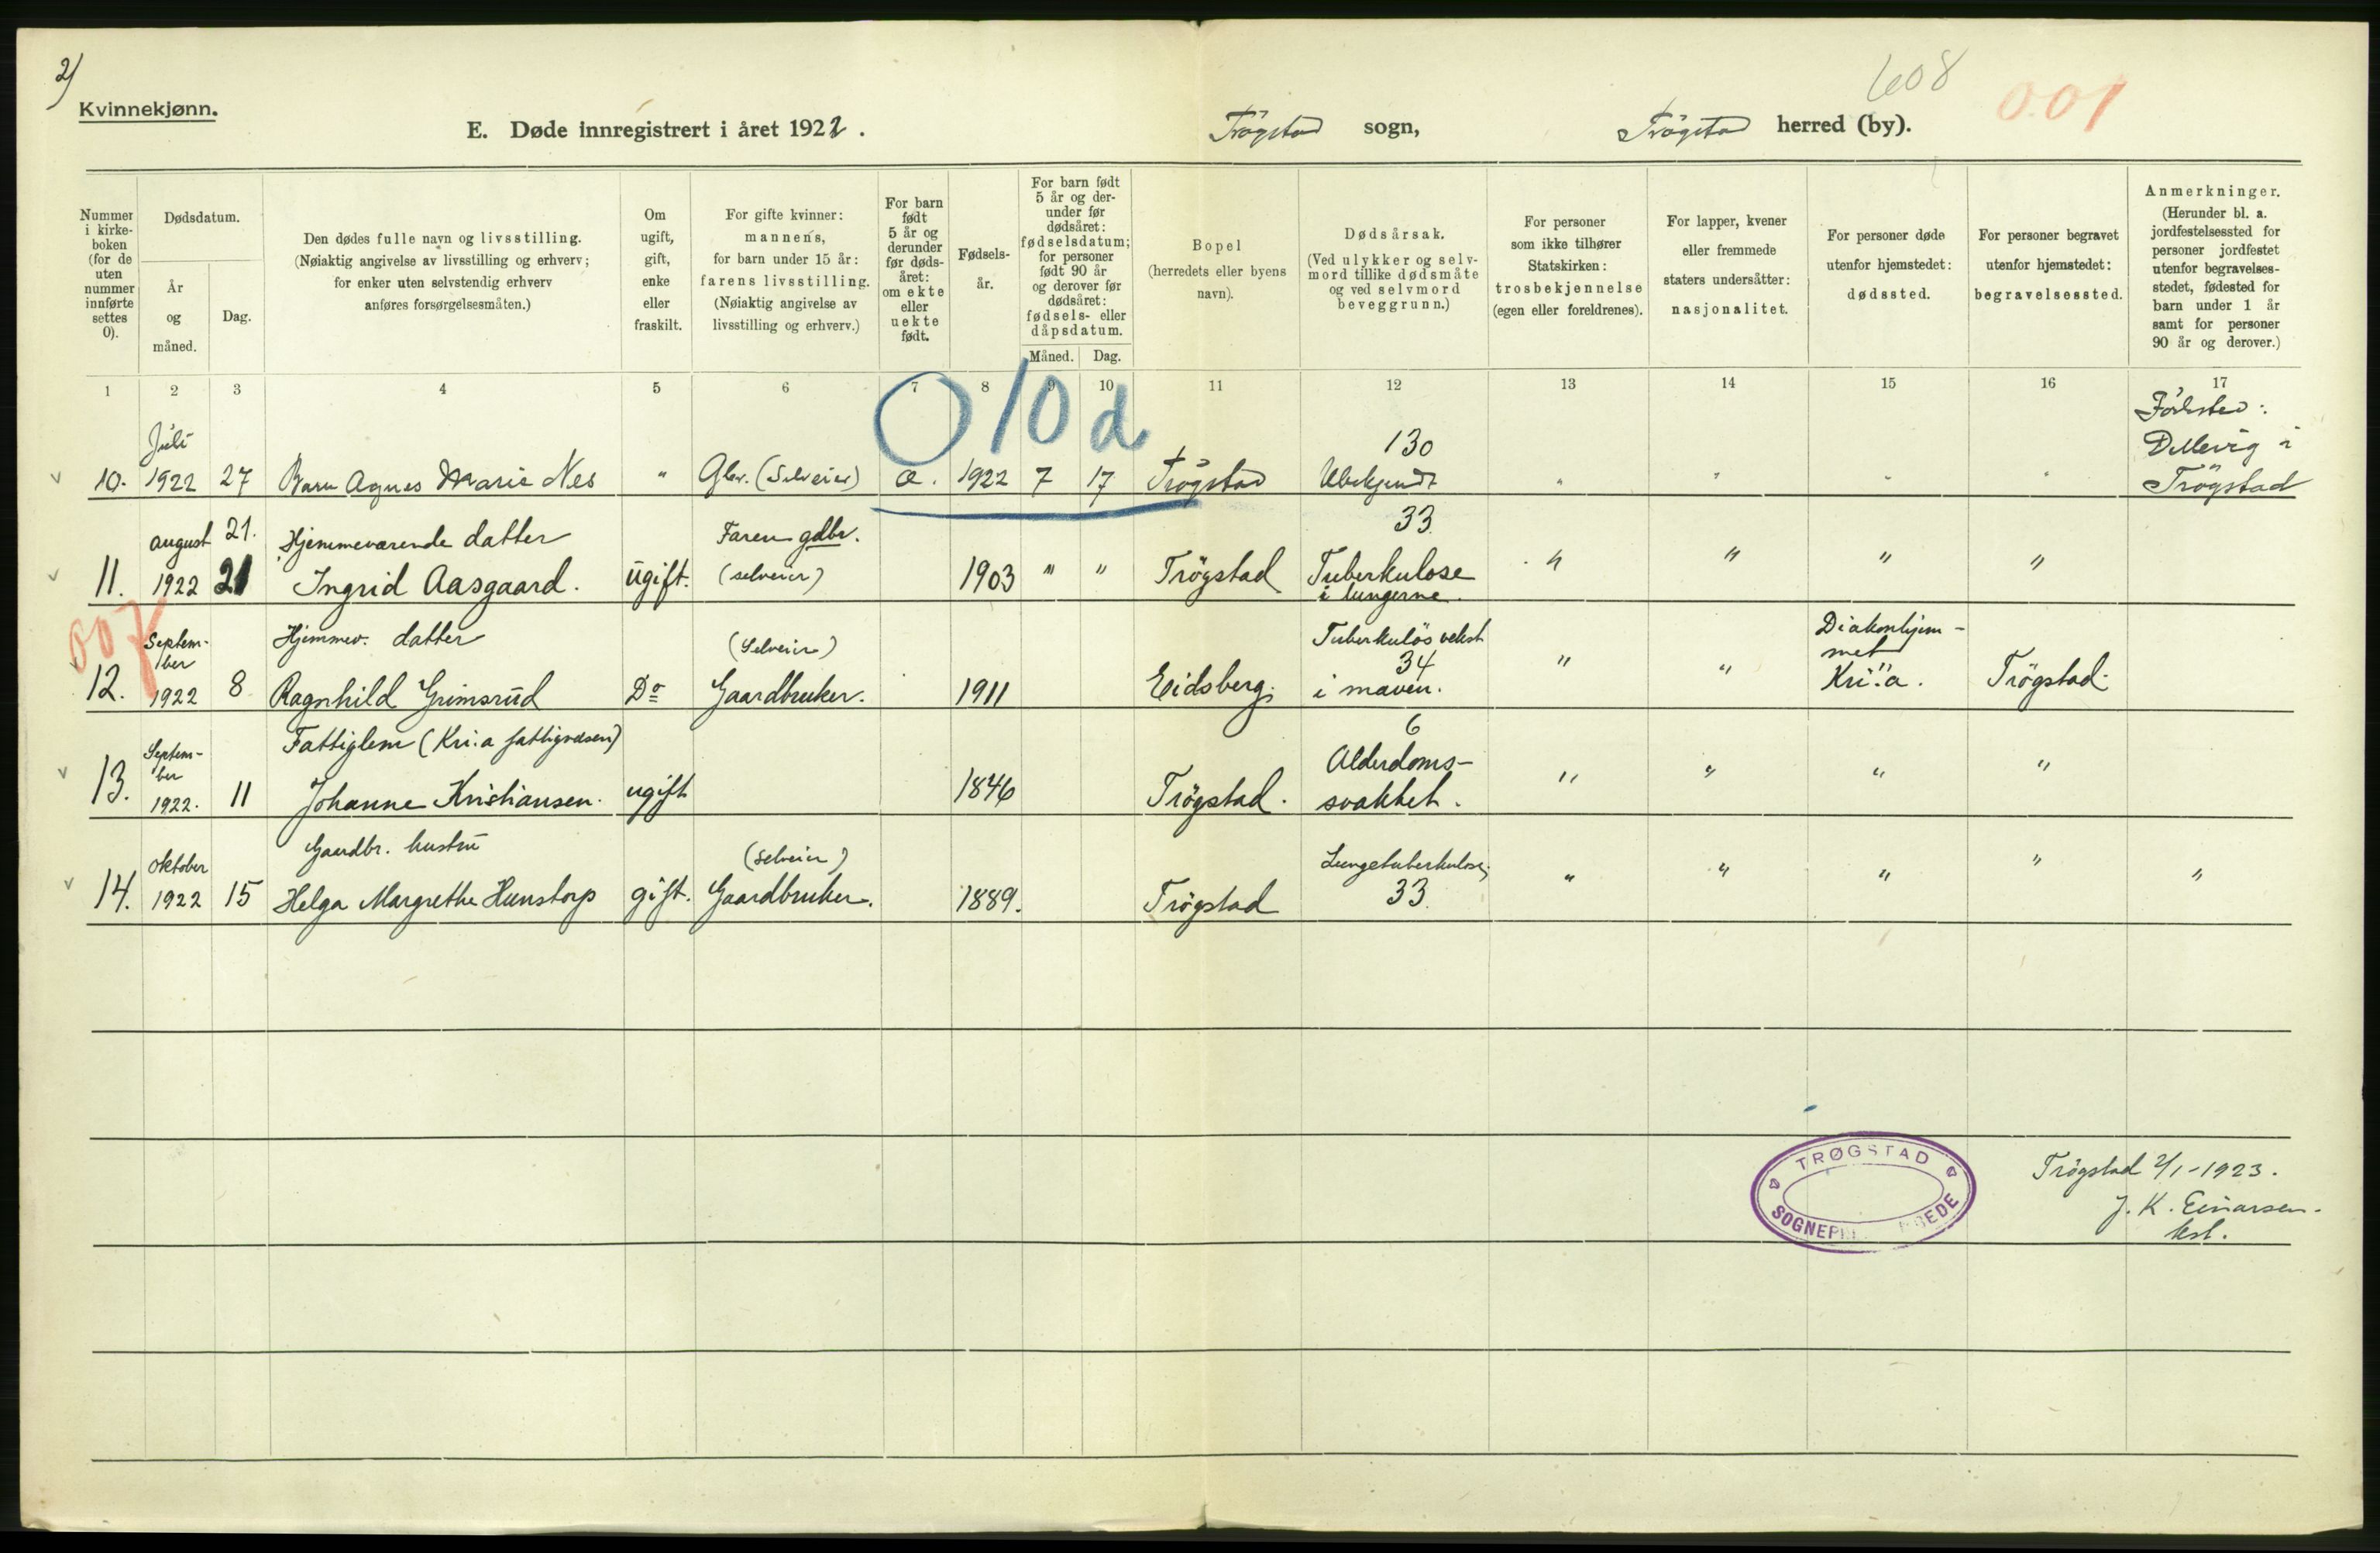 2)
Kvinnekjønn.
E. Døde innregistrert i året 1922.
Trögstad sogn,
Trögstad herred (by).
608
001
Nummer i kirke-boken (for de uten nummer innførte settes 0).
Dødsdatum.
År og måned.
Dag.
Den dødes fulle navn og livsstilling.
(Nøiaktig angivelse av livsstilling og erhverv;
for enker uten selvstendig erhverv
anføres forsørgelsesmåten.)
Om
ugift,
gift,
enke
eller
fraskilt.
For gifte kvinner:
mannens,
for barn under 15 år:
farens livsstilling.
(Nøiaktig angivelse av
livsstilling og erhverv.)
For barn
født
5 år og
derunder
før døds-
året:
om ekte
eller
uekte
født.
Fødsels-
år.
For barn født
5 år og der-
under før
dødsåret:
fødselsdatum;
for personer
født 90 år
og derover før
dødsåret:
fødsels- eller
dåpsdatum.
Måned. Dag.
Bopel
(herredets eller byens
navn).
Dødsårsak.
(Ved ulykker og selv-
mord tillike dødsmåte
og ved selvmord
beveggrunn.)
For personer
som ikke tilhører
Statskirken:
trosbekjennelse
(egen eller foreldrenes).
For lapper, kvener
eller fremmede
staters undersåtter:
nasjonalitet.
For personer døde
utenfor hjemstedet:
dødssted.
For personer begravet
utenfor hjemstedet:
begravelsessted.
Anmerkninger.
(Herunder bl. a.
jordfestelsessted for
personer jordfestet
utenfor begravelses-
stedet, fødested for
barn under 1 år
samt for personer
90 år og derover.)
1 2 3 4 5 6 7 8 9 10 11 12 13 14 15 16 17
010 d
Juli
130
Födested:
i
10. 1922 27 Barn Agnes Marie Nes " Gbr. (Selveier) æ. 1922 7 17 Trögstad Ubekjendt " " " " Trögstad
august 21. Hjemmeværende datter Faren gdbr. 33
11. 1922 21 Ingrid Aasgaard. ugift. (selveier) 1903 " " Trögstad Tuberkulose " " " "
i lungerne.
007
Septem- Hjemmev. datter (Selveier) Tuberkulös vekst Diakonhjem-
ber 34 met
12. 1922 8 Ragnhild Grimsrud Do Gaardbruker. 1911 Eidsberg. i maven. " " Kri:a. Trögstad.
Septem- Fattiglem (Kri:a fattigvæsen) 6
ber Alderdoms-
13. 1922. 11 Johanne Kristiansen. ugift 1846 Trögstad. svakhet. " " " "
oktober Gaardbr. hustru (Selveier) Lungetuberkulose;
14. 1922 15 Helga Margrethe Hunstorp gift. Gaardbruker. 1889. Trögstad 33. " " " " "
TRØGSTAD
Trögstad 2/1-1923.
J. K. Einarsen.